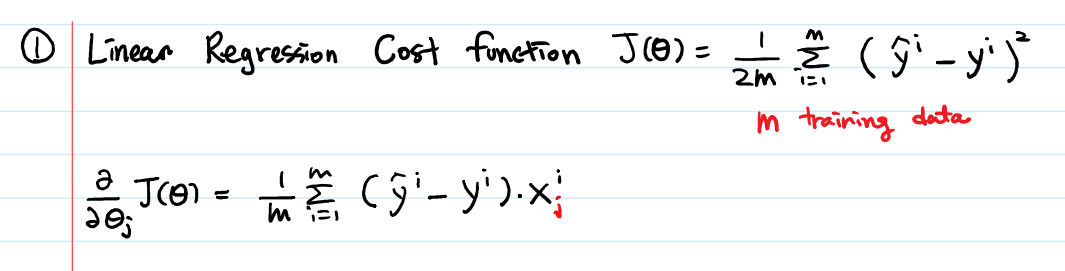 ① Linear Regression Cost function J(θ) = 1/2m Σ_{i=1}^{m} (ŷ^i - y^i)^2
m training data
∂/∂θ_j J(θ) = 1/m Σ_{i=1}^{m} (ŷ^i - y^i)·x_j^i